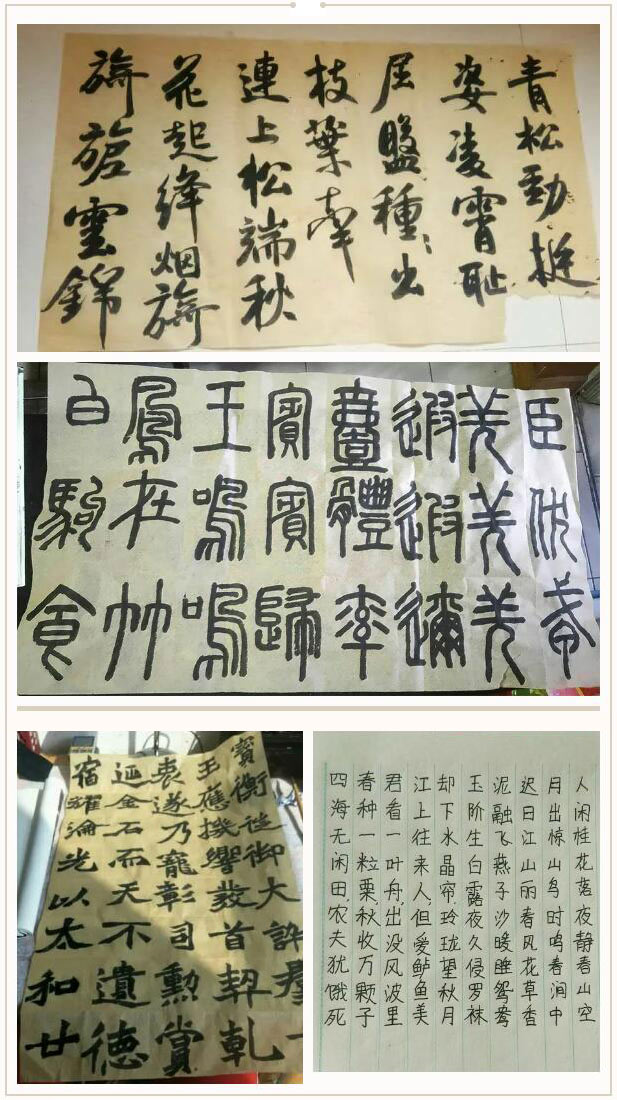 青松勁挺
姿凌霄恥
屈盤種々出
枝葉牽
連上松端秋
花起絳烟旖
旖旎雲錦
臣伏戎
羌羌羌
遐遐邇
壹體率
賓賓歸
王鳴鳴
鳳在竹
白駒食
寶衡從御大許羣
玉應機響發首契乹
衷遂乃寵彰司勳賞
延金石而天不遺德
宿耀淪光以太和廿
人闲桂花落夜静春山空
月出惊山鸟时鸣春涧中
迟日江山丽春风花草香
泥融飞燕子沙暖睡鸳鸯
玉阶生白露夜久侵罗袜
却下水晶帘,玲珑望秋月
江上往来人,但爱鲈鱼美
君看一叶舟,出没风波里
春种一粒粟,秋收万颗子
四海无闲田,农夫犹饿死